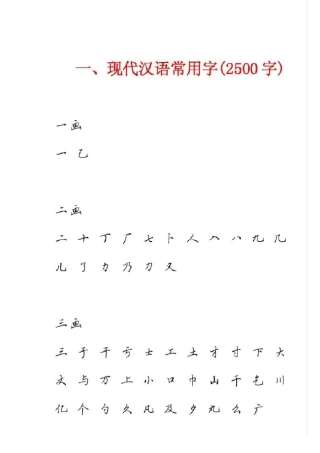 一、现代汉语常用字(2500字)
一画
一 乙
二画
二 十 丁 厂 七 卜 人 入 八 九 几
儿 了 力 乃 刀 又
三画
三 于 干 亏 士 工 土 才 寸 下 大
丈 与 万 上 小 口 巾 山 千 乞 川
亿 个 勺 久 凡 及 夕 丸 么 广